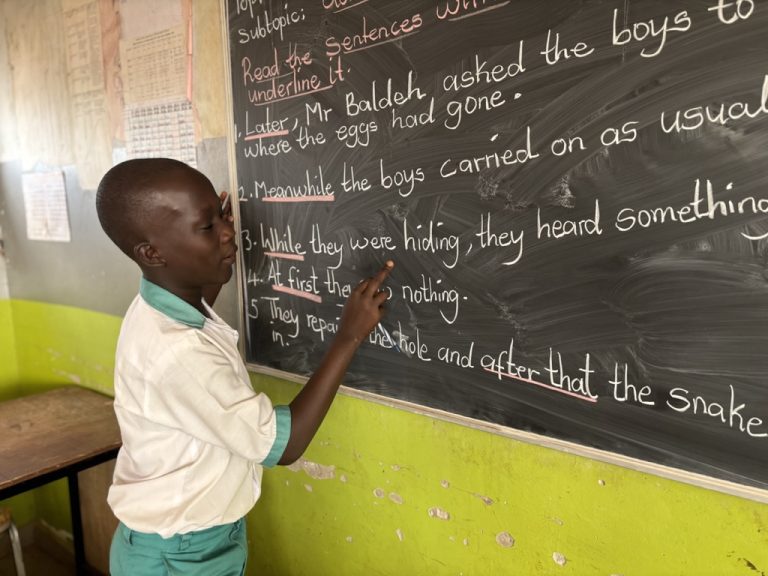 subtopic:
Read the Sentences
underline it.
1. Later, Mr Baldeh asked the boys to
where the eggs had gone.
2. Meanwhile the boys carried on as usual
3. While they were hiding, they heard something
4. At first nothing.
5 They the hole and after that the snake
in.